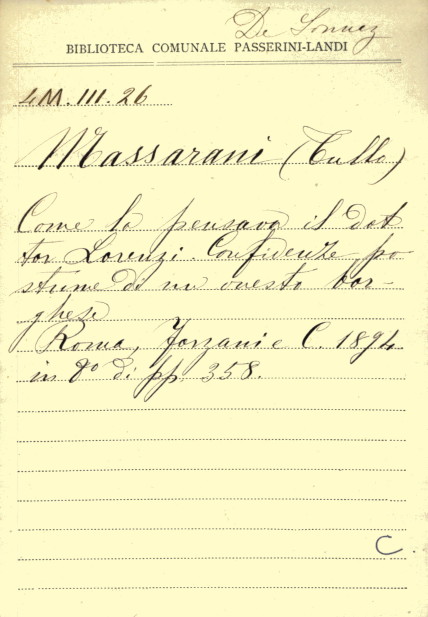 De
BIBLIOTECA COMUNALE PASSERINI-LANDI
4M. III. 26
Massarani (Tullo)
Come la pensava il dot
tor Lorenzi. Confidenze po
stume di un onesto bor-
ghese
Roma, Forzani e C. 1894
in 8° di pp. 358.
C.